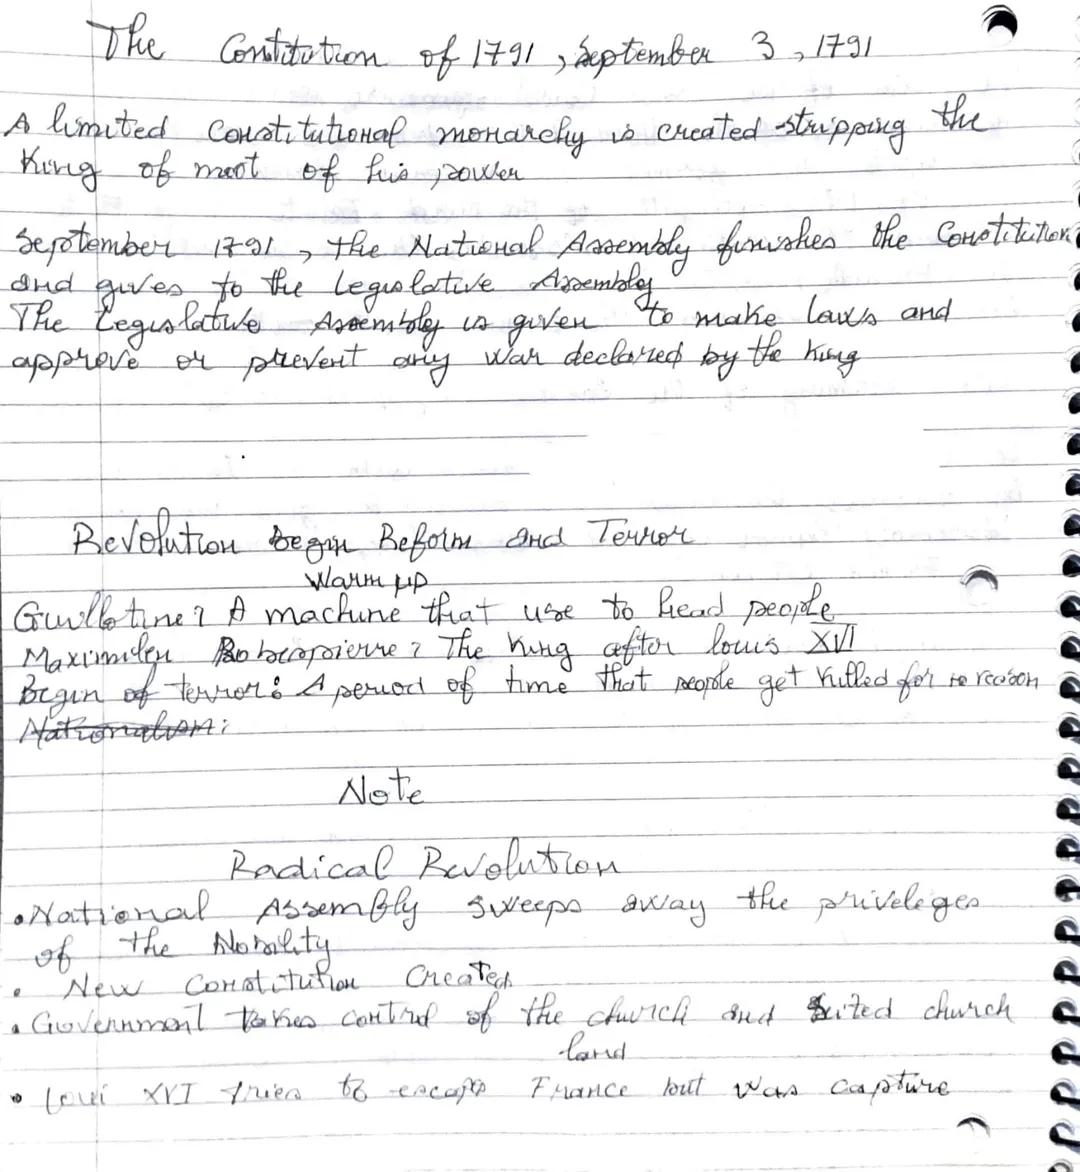 The Contitution of 1791, September 3, 1791
A limited constitutional monarchy is created stripping the
King of most of his power
September 1791, the National Assembly finishes the Constitution
and gives to the Legislative Assembly
The Legislative Assembly is given to make laws and
approve or prevent any war declared by the King
Revolution begin Reform and Terror
Warm up
Guillotine? A machine that use to head people
Maximilen Robespierre? The King after louis XVI
Begin of terror: A period of time that people get killed for no reason
Nationalism:
Note
Radical Revolution
• National Assembly sweeps away the priveleges
of the Nobility
• New Constitution Created
• Government takes control of the church and church
land
• Loui XVI tries to escape France but was capture